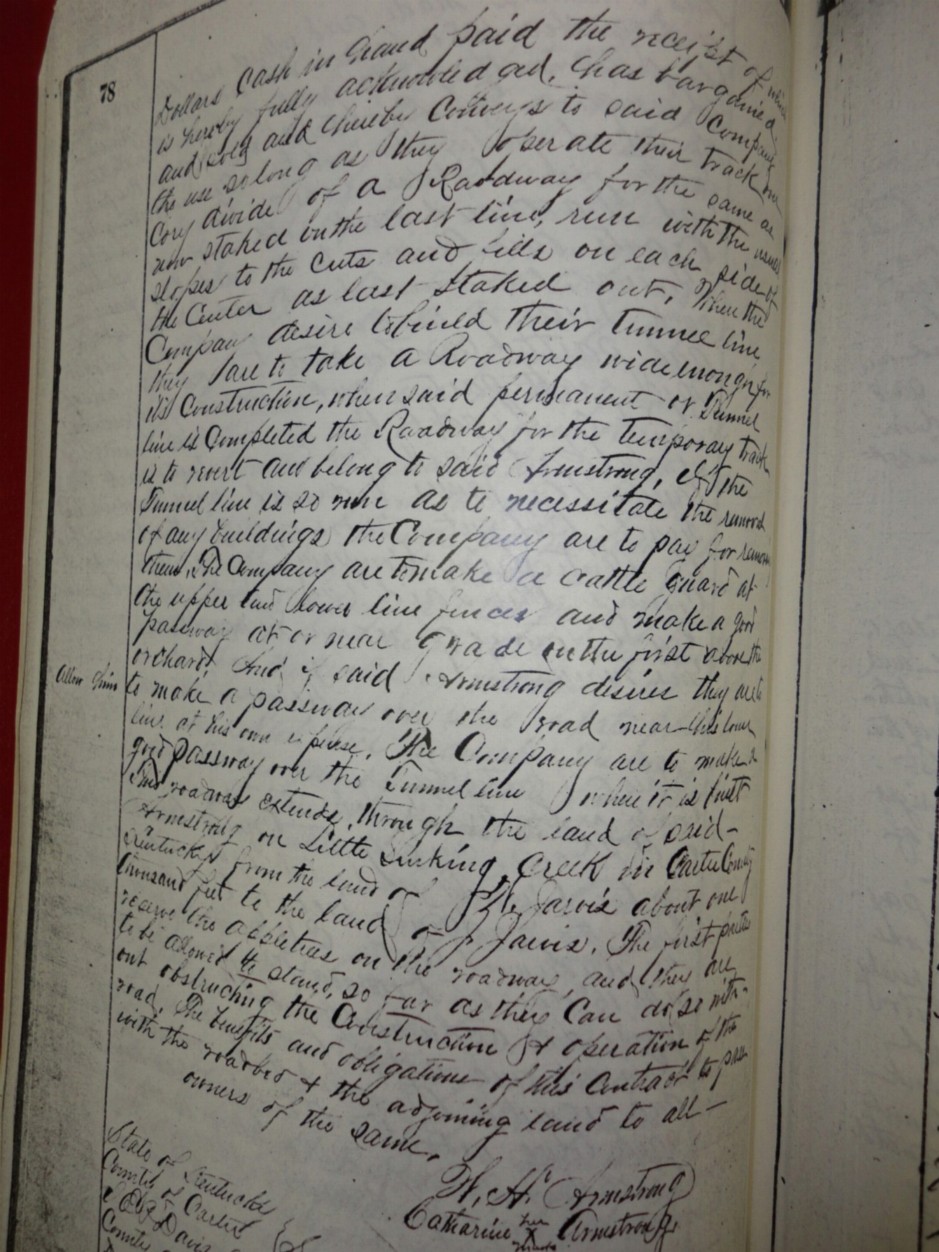 78
Dollars cash in hand paid the receipt of which
is hereby fully acknowledged, has bargained
and sold and hereby conveys to said Company
the use so long as they operate their track
divide of a Roadway for the same as
now staked on the last line, run with the usual
slopes to the cuts and fills on each side of
the Center as last staked out, When the
Company desire to build their Tunnel line
they are to take a Roadway wide enough for
its Construction, when said permanent or Tunnel
line is Completed the Roadway for the temporary track
is to revert and belong to said Armstrong, If the
Tunnel line is so run as to necessitate the removal
of any buildings the Company are to pay for removing
them, The Company are to make a cattle guard at
the upper and lower line fences and make a good
passway at or near grade on the first above the
orchard And if said Armstrong desires they are to
Allow him
to make a passway over the road near his lower
line at his own expense. The Company are to make a
good passway over the Tunnel line where it is just
This roadway extends, through the land of said
Armstrong on Little Sinking Creek in Carter County
Kentucky from the land of Jarvis about one
thousand feet to the land of J. Jarvis. The first parties
reserve the appletrees on the roadway, and they are
to be allowed to stand, so far as they can do so with-
out obstructing the Construction & operation of the
road. The benefits and obligations of this Contract to pass
with the roadbed & the adjoining land to all
owners of the same.
W. H. Armstrong
Catharine her X mark Armstrong
State of Kentucky
County of Carter
Davis
County